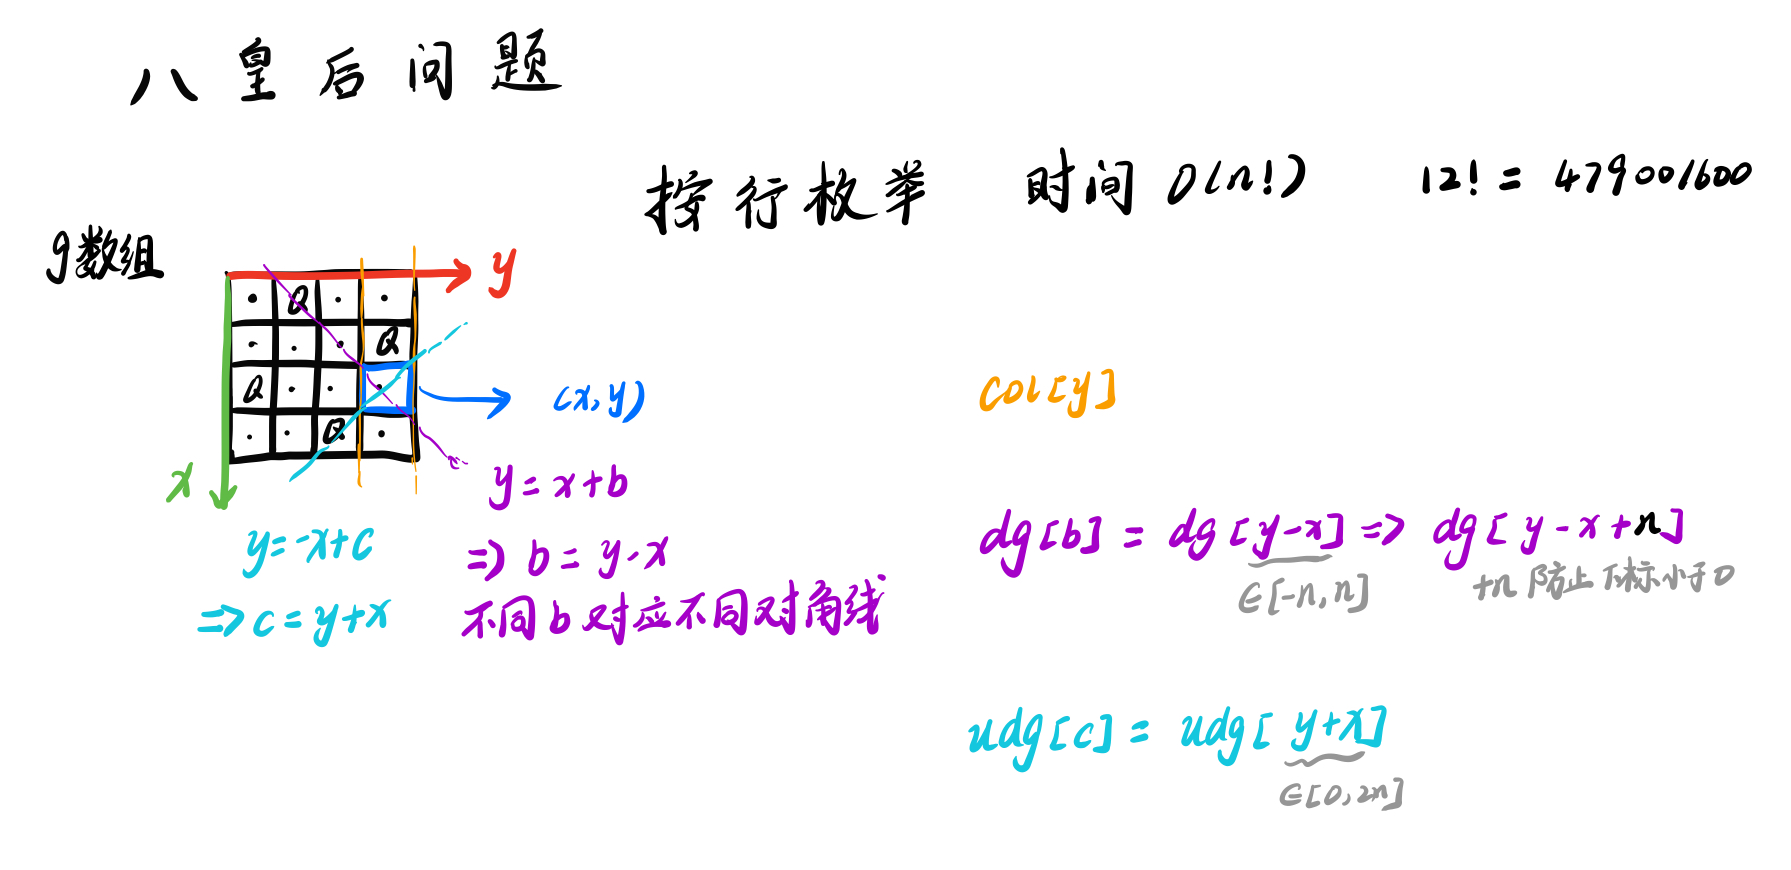 八皇后问题
按行枚举 时间 O(n!) 12! = 479001600
g数组
y
· Q · ·
· · · Q
Q · · ·
· · Q ·
(x,y)
x
col[y]
y = x+b
=> b = y-x
不同b对应不同对角线
y=-x+c
=> c = y+x
dg[b] = dg[y-x] => dg[y-x+n]
∈[-n,n]
+n 防止下标小于0
udg[c] = udg[y+x]
∈[0,2n]